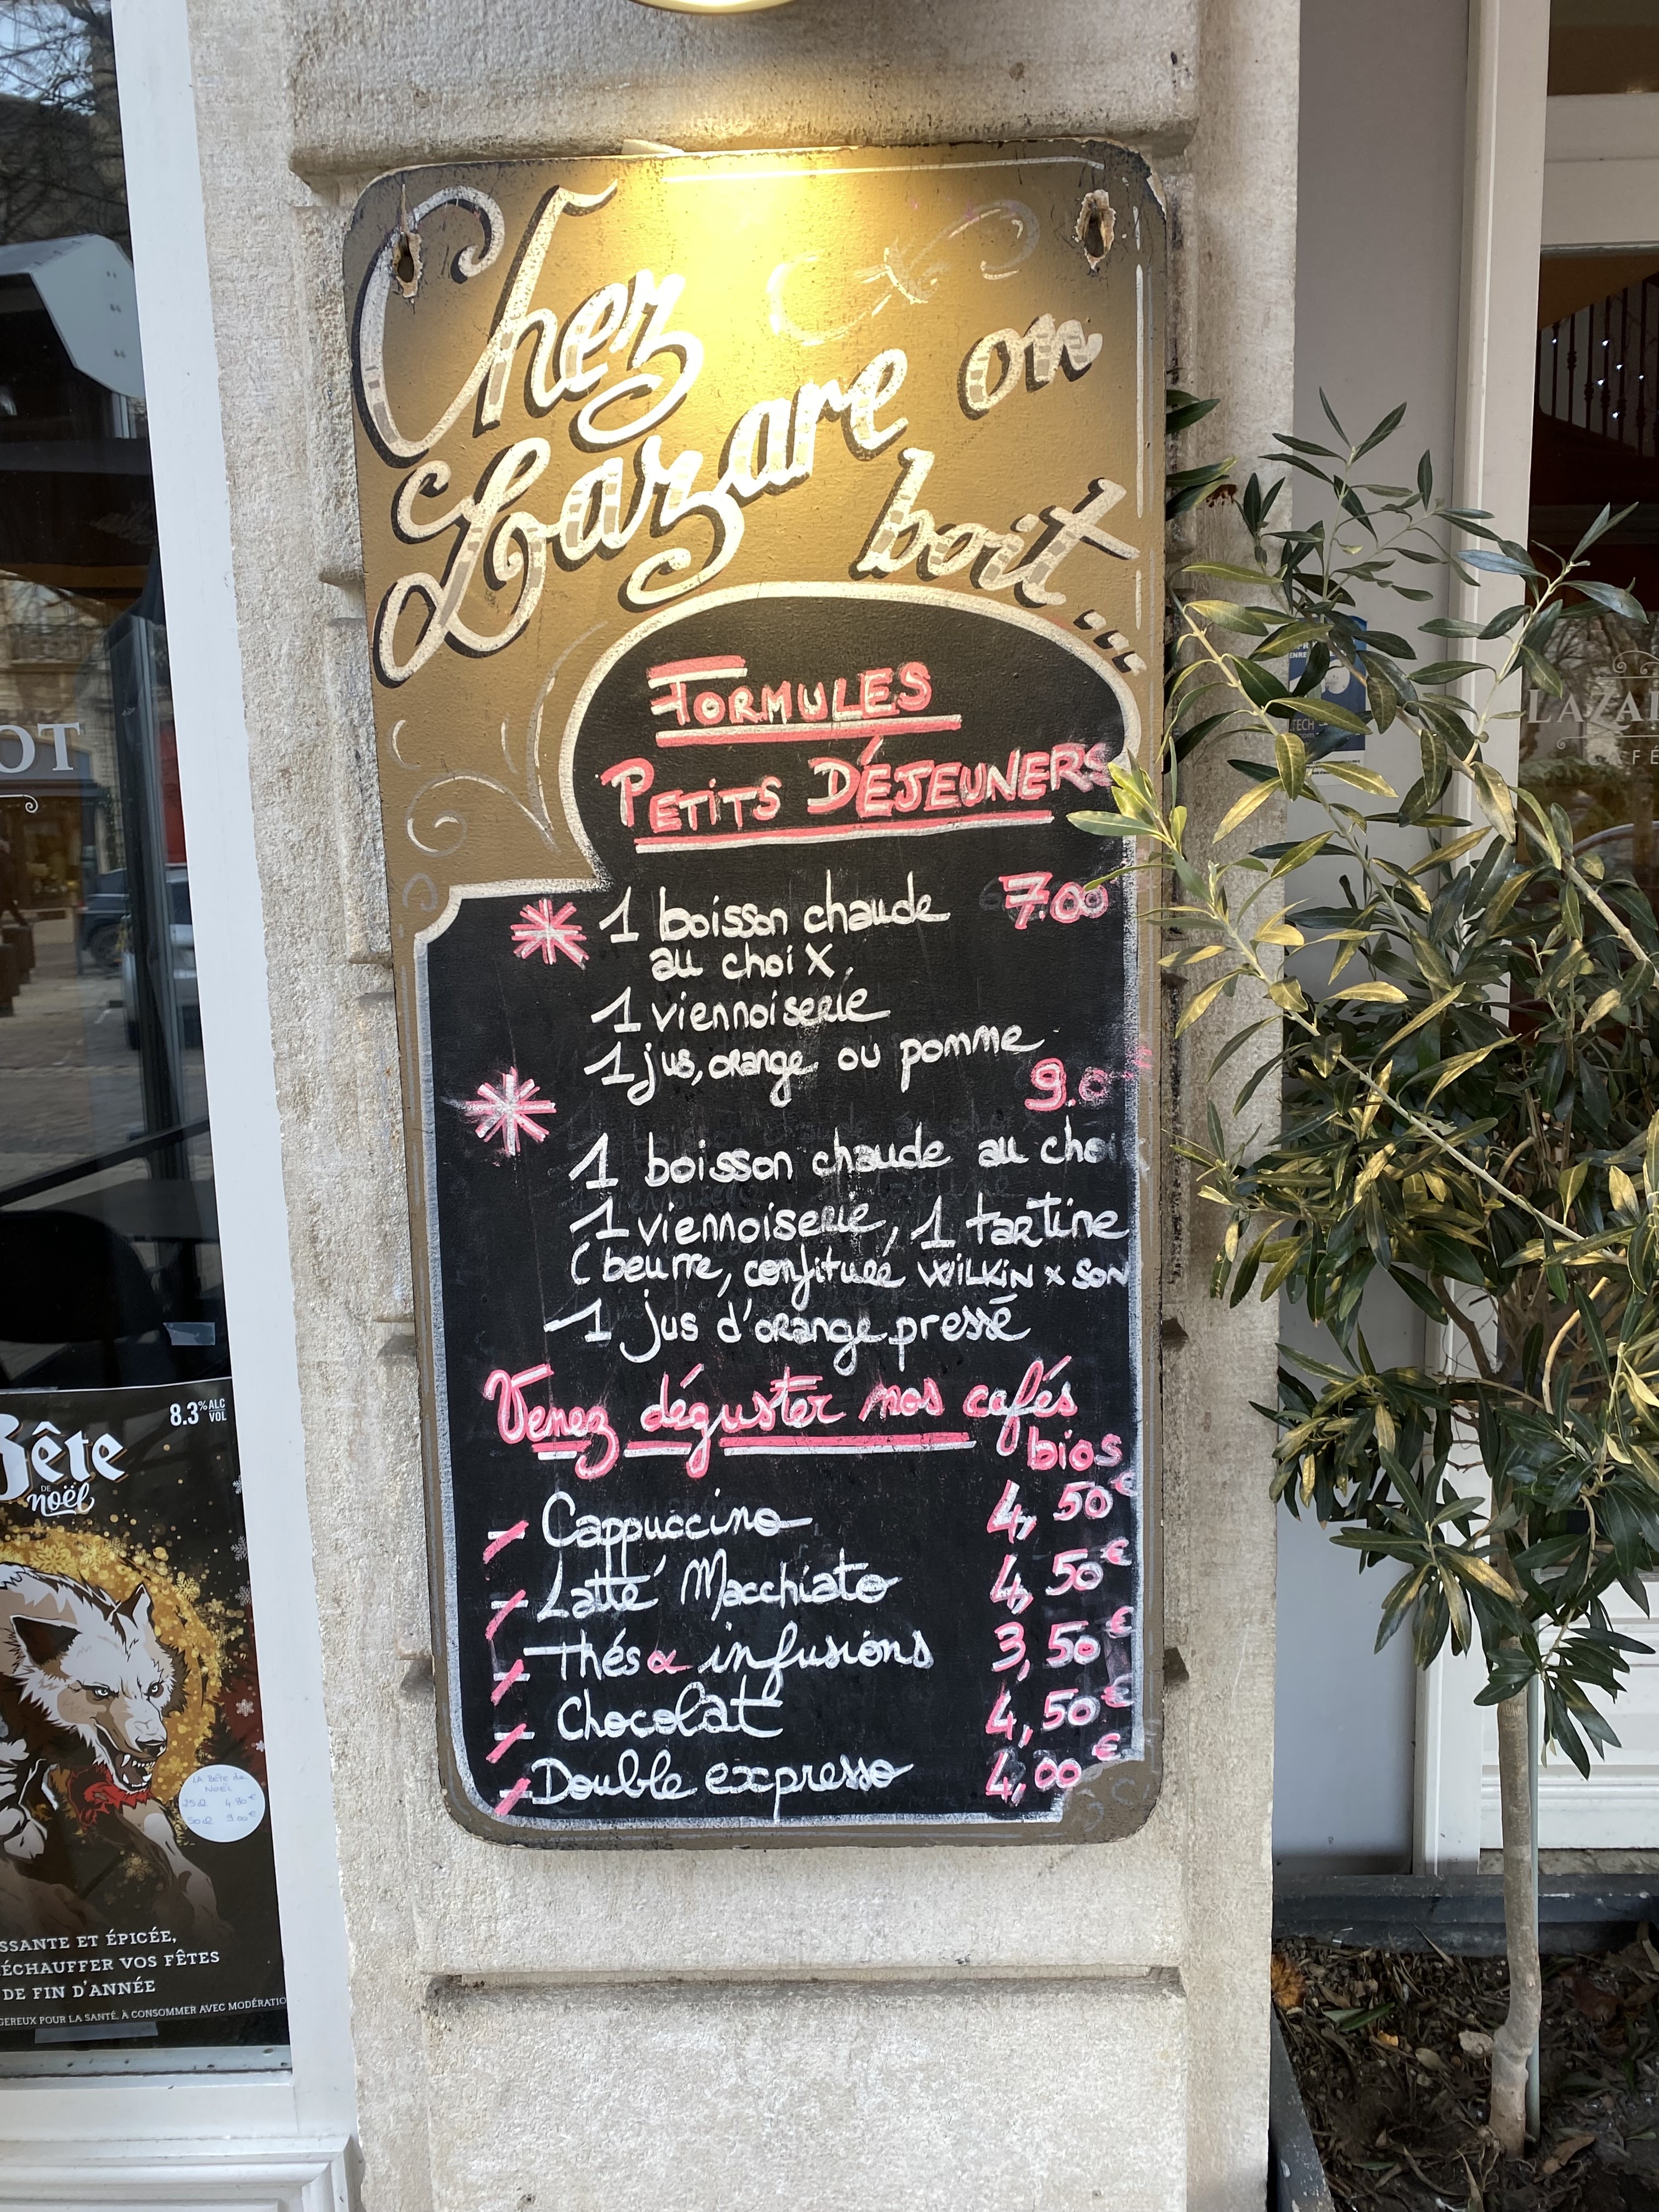 Chez
Lazare on
boit...
FORMULES
PETITS DÉJEUNERS
1 boisson chaude 7.00
au choix,
1 viennoiserie
1 jus, orange ou pomme
9.0
1 boisson chaude au choix
1 viennoiserie, 1 tartine
(beurre, confiture WILKIN x SON
1 jus d'orange pressé
Venez déguster nos cafés
bios
Cappuccino 4,50€
Latté Macchiato 4,50€
Thés & infusions 3,50€
Chocolat 4,50€
Double expresso 4,00€
OT
8.3% ALC
VOL
Bête
DE
noël
LA BÊTE de
NOËL
25cl 4.80€
50cl 9.00€
SSANTE ET ÉPICÉE,
ÉCHAUFFER VOS FÊTES
DE FIN D'ANNÉE
GEREUX POUR LA SANTÉ. À CONSOMMER AVEC MODÉRATIO
LAZA
FÉ
TECH